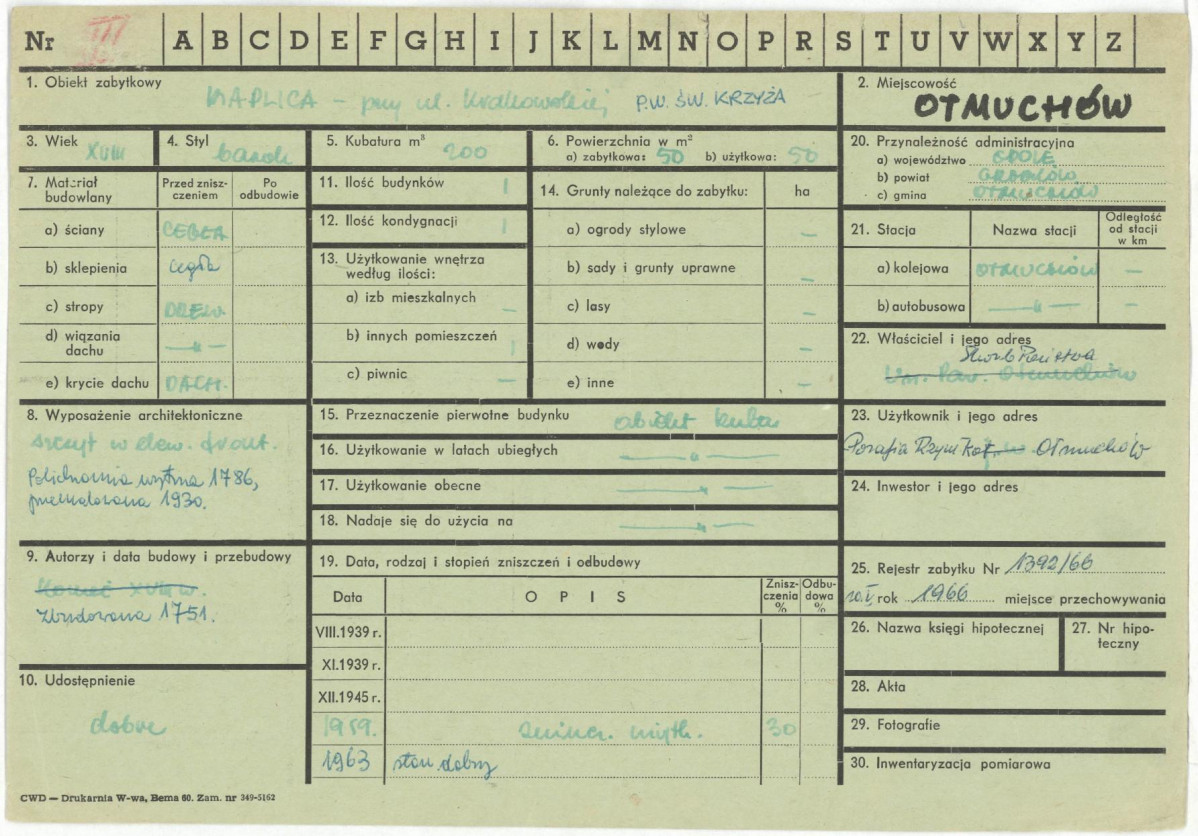 Nr III A B C D E F G H I J K L M N O P R S T U V W X Y Z
1. Obiekt zabytkowy
KAPLICA – przy ul. Krakowskiej P.W. ŚW. KRZYŻA
2. Miejscowość
OTMUCHÓW
3. Wiek XVIII
4. Styl barok
5. Kubatura m³ 200
6. Powierzchnia w m²
a) zabytkowa: 50 b) użytkowa: 50
7. Materiał budowlany
Przed zniszczeniem
Po odbudowie
a) ściany CEGŁA
b) sklepienia cegła
c) stropy DREW.
d) wiązania dachu —„—
e) krycie dachu DACH.
8. Wyposażenie architektoniczne
szczyt w elew. front.
Polichromia 1786,
przemalowana 1930.
9. Autorzy i data budowy i przebudowy
Koniec XVIII w.
Zbudowana 1751.
10. Udostępnienie
dobre
11. Ilość budynków 1
12. Ilość kondygnacji 1
13. Użytkowanie wnętrza według ilości:
a) izb mieszkalnych –
b) innych pomieszczeń 1
c) piwnic –
14. Grunty należące do zabytku: ha
a) ogrody stylowe –
b) sady i grunty uprawne –
c) lasy –
d) wody –
e) inne –
15. Przeznaczenie pierwotne budynku obiekt kultu
16. Użytkowanie w latach ubiegłych —„—
17. Użytkowanie obecne —„—
18. Nadaje się do użycia na —„—
19. Data, rodzaj i stopień zniszczeń i odbudowy
Data OPIS Zniszczenia % Odbudowa %
VIII.1939 r.
XI.1939 r.
XII.1945 r.
1959. 30
1963 stan dobry
20. Przynależność administracyjna
a) województwo OPOLE
b) powiat GRODKÓW
c) gmina OTMUCHÓW
21. Stacja Nazwa stacji Odległość od stacji w km
a) kolejowa OTMUCHÓW –
b) autobusowa —„— –
22. Właściciel i jego adres
Skarb Państwa
Otmuchów
23. Użytkownik i jego adres
Parafia Rzym Kat. Otmuchów
24. Inwestor i jego adres
25. Rejestr zabytku Nr 1392/66
10.V rok 1966 miejsce przechowywania
26. Nazwa księgi hipotecznej
27. Nr hipoteczny
28. Akta
29. Fotografie
30. Inwentaryzacja pomiarowa
CWD — Drukarnia W-wa, Bema 60. Zam. nr 349-5162